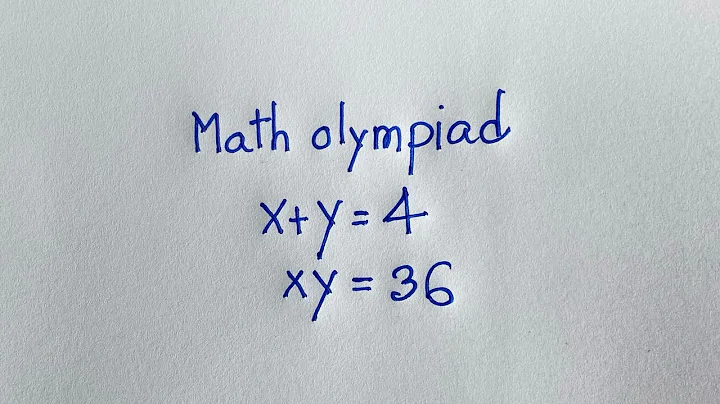 Math olympiad
x+y=4
xy=36